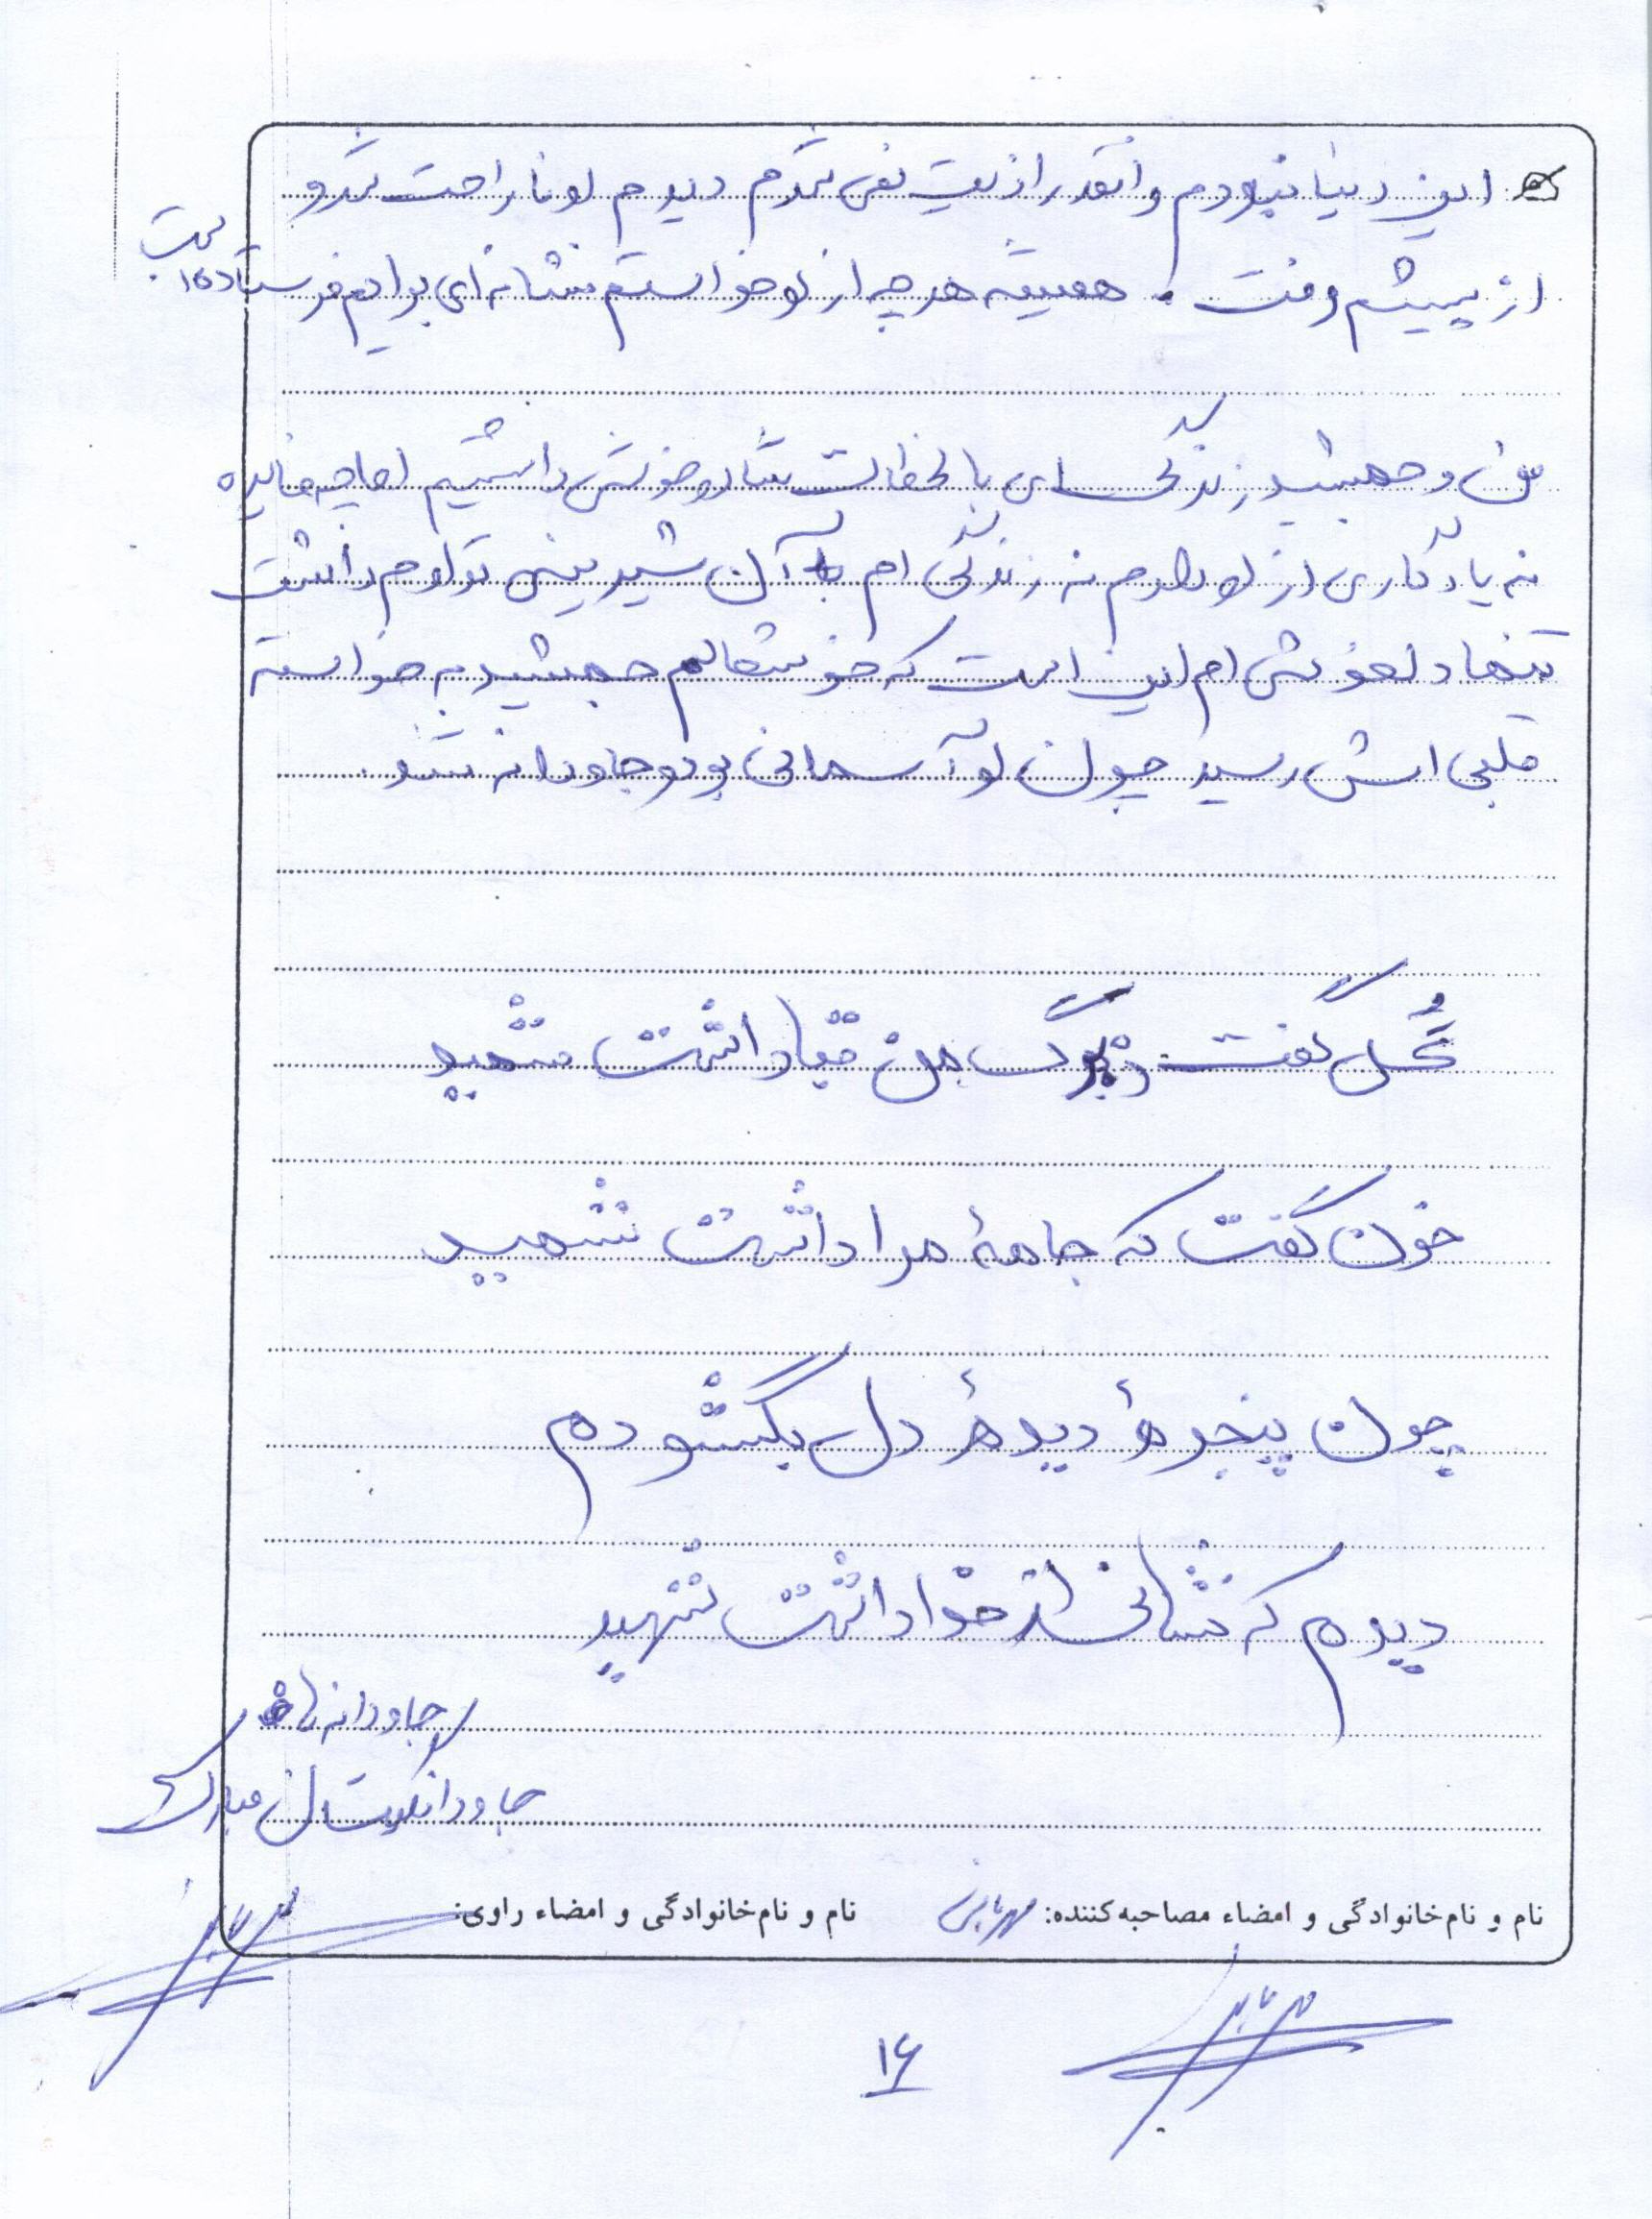 این دنیا نبودم و آنقدر اذیت نمی شدم دیدم او ناراحت شد و
از پیشم رفت. همیشه هر چه از او خواستم نشانه ای برایم فرستاده است
من و جمشید زندگی ای با لحظات شاد و خوش داشتیم اما چه فایده
نه یادگاری از او دارم نه زندگی ام با آن شیرینی تداوم داشت
تنها دلخوشی ام این است که خوشحالم جمشید به خواسته
قلبی اش رسید چون او آسمانی بود و جاودانه شد
گُل گفت ز برگ من قبا داشت شهید
خون گفت که جامهٔ مرا داشت شهید
چون پنجرهٔ دیدهٔ دل بگشودم
دیدم که نشانی از خدا داشت شهید
جاودانه ها
جاودانگیتان مبارک
نام و نام خانوادگی و امضاء مصاحبه کننده: نام و نام خانوادگی و امضاء راوی:
۱۶